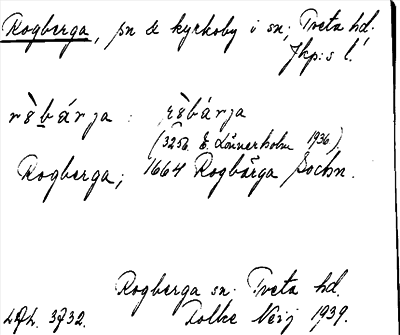 Rogberga, sn & kyrkoby i sn; Tveta hd.
Jkp:s l.
rèbárja : rèbárja
(3256 E. Linnerholm 1936).
Rogberga; 1664 Rogbärga Sochn.
Rogberga sn. Tveta hd.
3732. 1939.